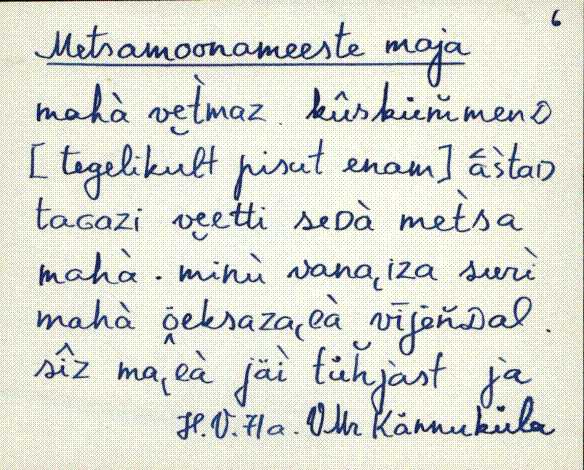 6
Metsamoonameeste maja
mahà vet̀maz. kûsküm̆menD
[tegelikult pisut enam] âstaD
taGazi veetti seDà met̀sa
mahà. minù vana,iza surì
mahà ȫeksaza,eà vījen̆Dal.
sîz ma,eà jäì tüh̆jast jà
H.V. 71a. VMr Kännuküla